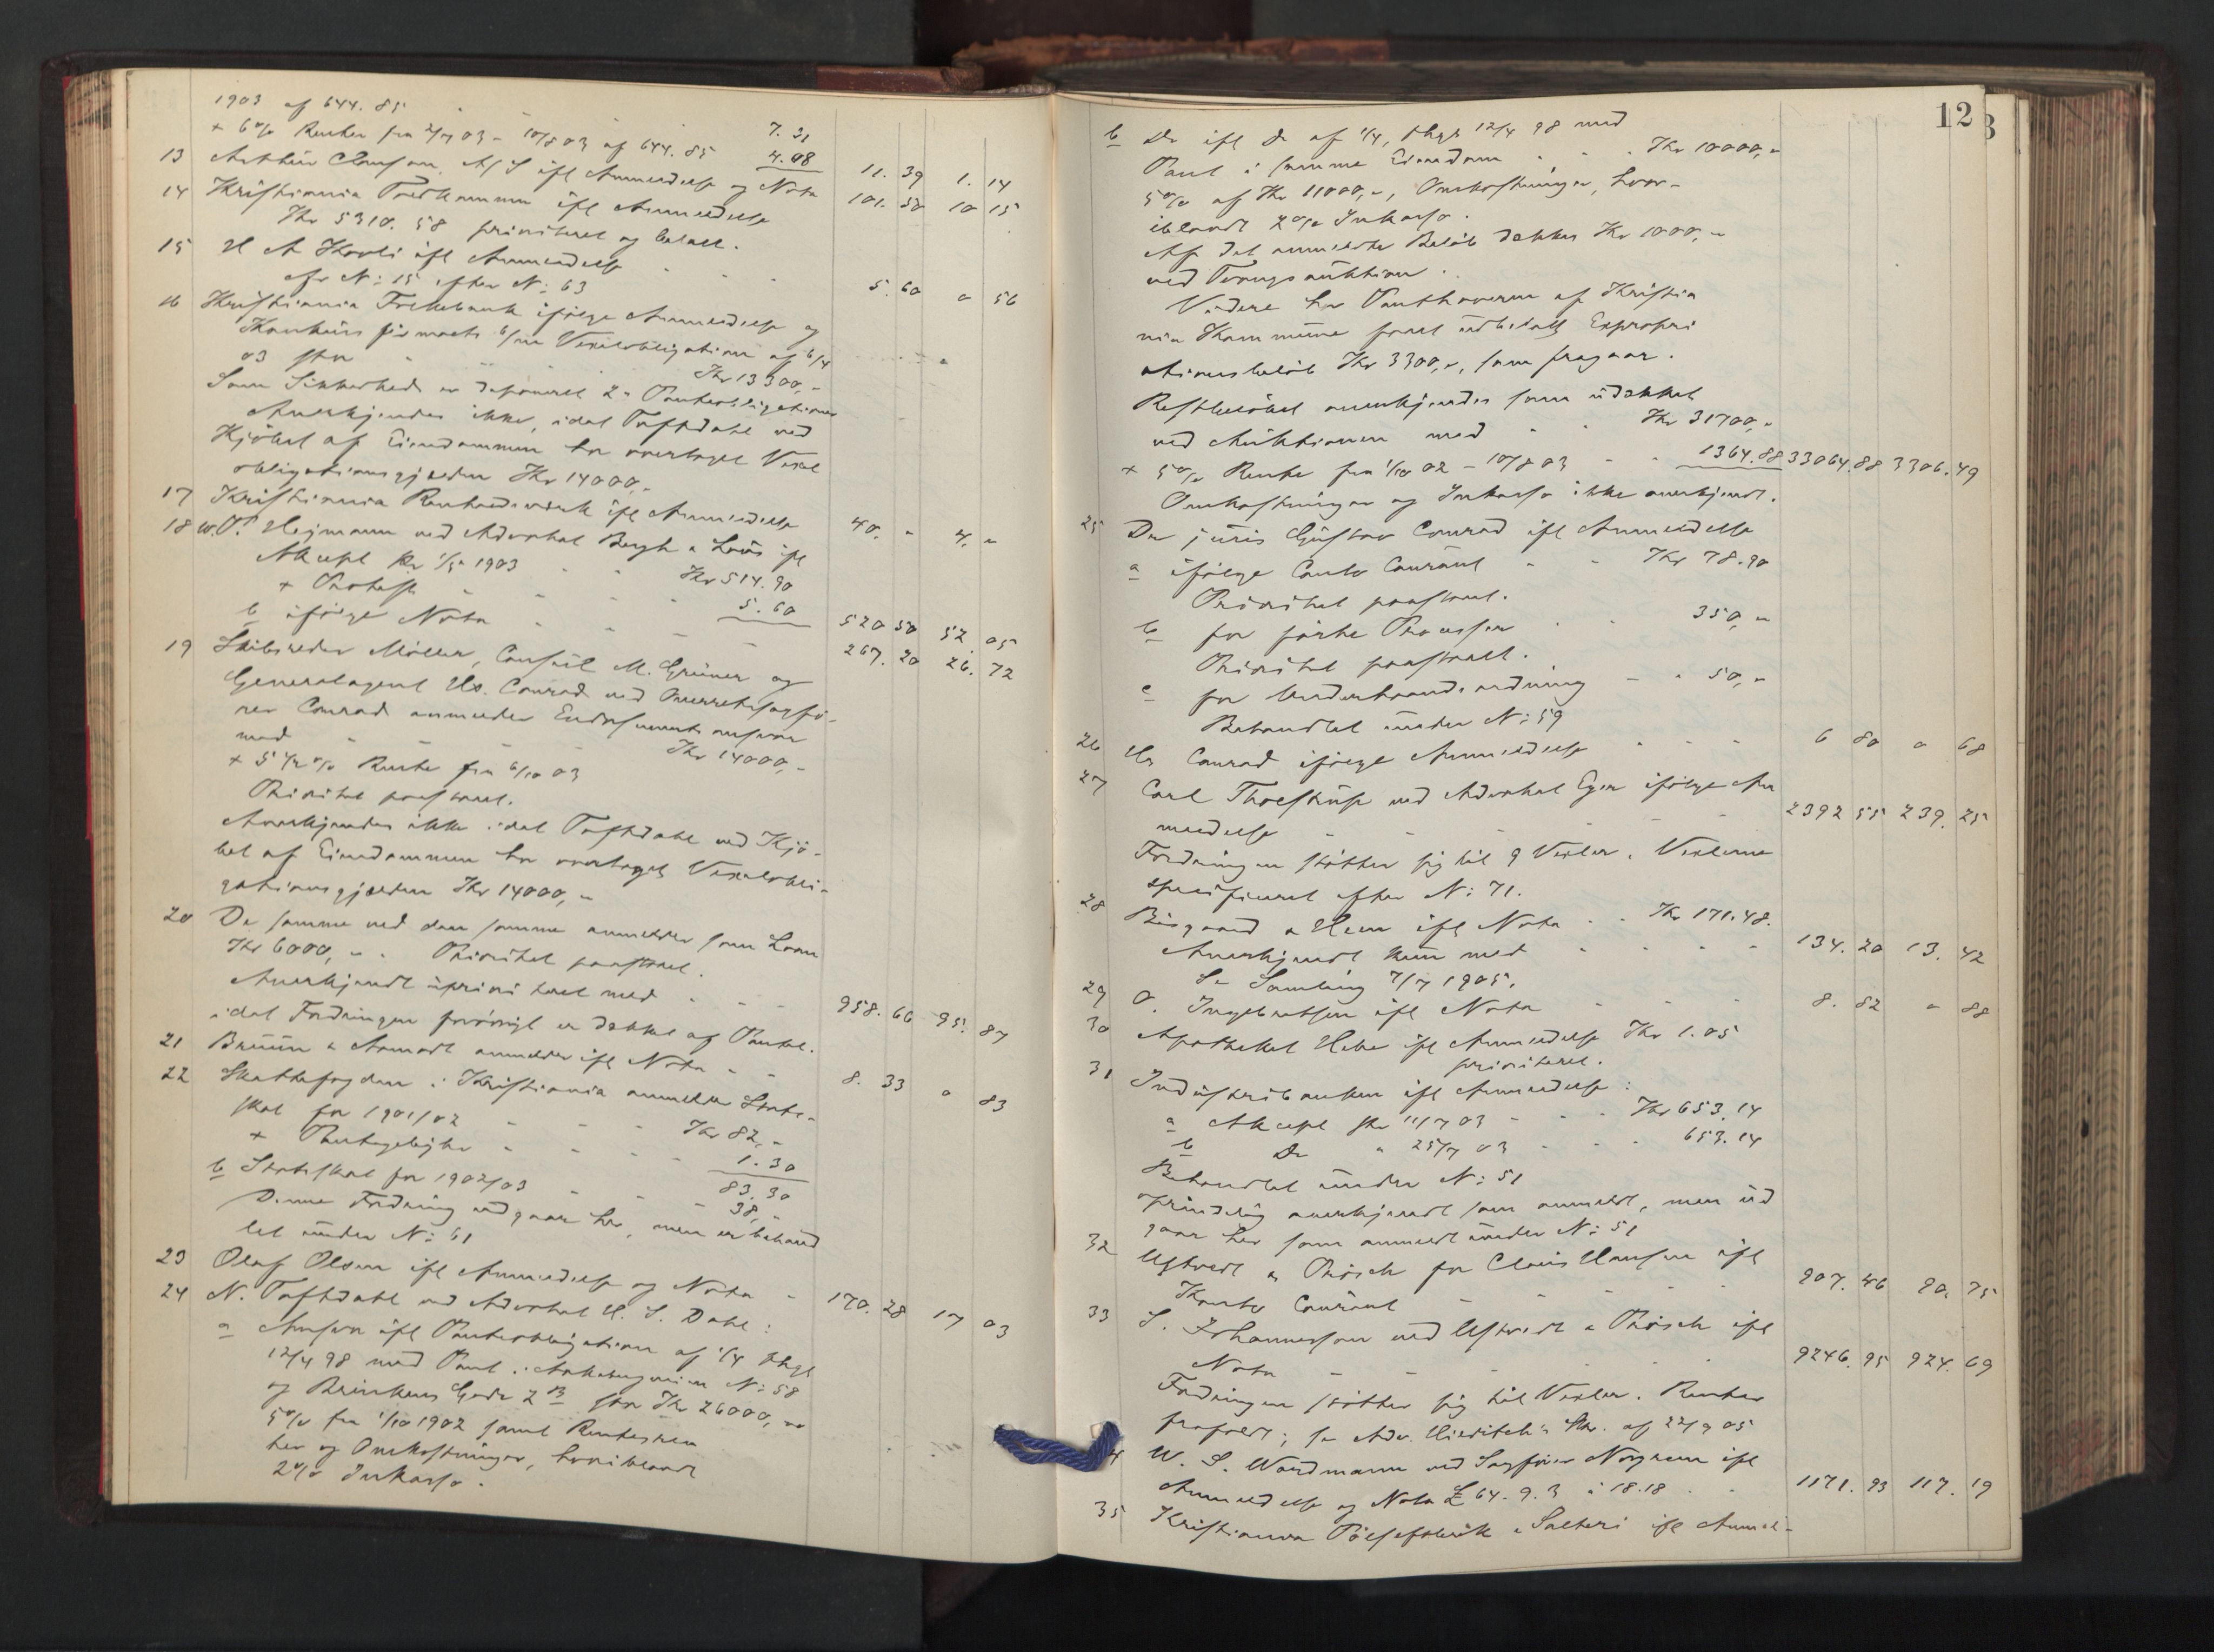 1903 af 644. 85 7. 31
+ 6% Renter fra 2/7 03 - 10/8 03 af 644. 85 4.08 11. 39 1. 14
13 A/S ifl Anmeldelse og Nota 101. 50 10 15
14 Kristiania ifl Anmeldelse
Kr 5310. 58 prioriteret og betalt.
15 H A ifl Anmeldelse 5. 60 " 56
Se N: 15 efter N: 63
16 Kristiania Folkebank ifølge Anmeldelse og
Vexelobligation af 6/4
03 stor Kr 13300,-
Som Sikkerhed er deponeret 2 Panteobligationer
Anerkjendes ikke, idet Toftdahl ved
Kjøbet af Eiendommen har overtaget Vexel
obligationsgjælden Kr 14000,-
17 Kristiania ifl Anmeldelse 40. " 4. "
18 W. P. Hejmann ved Advokat Bergh & ifl
Akcept pr 1/5 1903 Kr 514.90
+ Protest 5.60 520 50 52. 05
b ifølge Nota 267. 20 26. 72
19 Skibsreder Møller, Consul M. Grüner og
Generalagent Hs. Conrad ved Overretssagfø-
rer Conrad anmelder Endossements ansvar
med Kr 14000,-
+ 5 1/2 % Rente fra 6/10 03
Prioritet paastaaet.
Anerkjendes ikke idet Toftdahl ved Kjø-
bet af Eiendommen har overtaget Vexelobli-
gationsgjælden Kr 14000,-
20 De samme ved den samme anmelder som Laan
Kr 6000,- . Prioritet paastaaet.
Anerkjendt uprioriteret med 958. 66 95. 87
idet Fordringen forøvrigt er dækket af Pantet.
21 Bruun & anmelder ifl Nota 8. 33 " 83
22 Skattefogden i Kristiania anmelder Stats-
skat for 1901/02 Kr 82,-
+ 1.30
83.30
b Statsskat for 1902/03 38,-
Denne Fordring udgaar her, men er behand
let under N: 61
23 Olaf Olsen ifl Anmeldelse og Nota 170. 28 17 03
24 N. Toftdahl ved Advokat H. S. Dahl:
a Ansvar ifl Panteobligation af 1/4 thgl
12/4 98 med Pant i N: 58
og Gade 2B stor Kr 26000,-
5% fra 1/10 1902 samt
ter og Omkostninger, hvoriblandt
2% Inkasso.
12
b Do ifl Do af 1/4, thgl 12/4 98 med
Pant i samme Eiendom Kr 10000,-
5% af Kr 11000,-, Omkostninger, hvor-
iblandt 2% Inkasso.
Af det anmeldte Beløb dækkes Kr 1000,-
ved Tvangsauktion.
Videre har Panthaveren af Kristia
nia Kommune faaet udbetalt Expropri
ationsbeløb Kr 3300,-, som fragaar.
Restbeløbet anerkjendes som udækket
ved Auktionen med Kr 31700,-
+ 5% Rente fra 1/10 02 - 10/8 03 1364.88 33064.88 3306.49
Omkostninger og Inkasso ikke anerkjendt.
25 Dr juris Gustav Conrad ifl Anmeldelse
a ifølge Conto Courant Kr 78.90
Prioritet paastaaet.
b for førte Processer 350,-
Prioritet paastaaet.
c for Underhaandsordning 50,-
Behandlet under N: 59
26 Hs Conrad ifølge Anmeldelse 6 80 " 68
27 Carl Tholstrup ved Advokat Eger ifølge An
meldelse 2392 55 239. 25
Fordringen støtter sig til 9 Vexler. Vexlerne
specificeret efter N: 71.
28 & Hem ifl Nota Kr 171.48.
Anerkjendt kun med 134. 20 13. 42
Se Samling 7/7 1905.
29 O. Ingebretsen ifl Nota 8. 82 " 88
30 Apotheket Hebe ifl Anmeldelse Kr 1.05
prioriteret.
31 Industribanken ifl Anmeldelse:
a Akcept pr 11/7 03 Kr 653.14
b Do " 25/7 03 653.14
Behandlet under N: 51
oprindelig anerkjendt som anmeldt, men ud
gaar her som anmeldt under N: 51
32 Ustvedt & for Claus Hansen ifl
Konto Courant 907. 46 90. 75
33 S. Johannessen ved Ustvedt & ifl
Nota 9246. 95 924. 69
Fordringen støtter sig til Vexler. Renter
frafaldt; se Adv. Skr. af 22/9 05
4 W. S. Woodmann ved Sagfører ifl
Anmeldelse og Nota £ 64. 9. 3 à 18.18 1171. 93 117. 19
35 Kristiania Pølsefabrik & Salteri ifl Anmel-